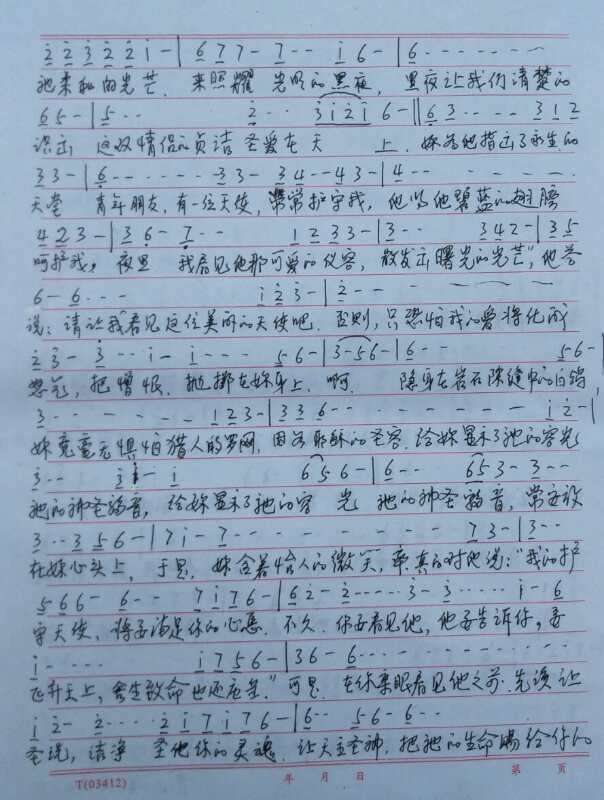 2 2 3 2 2 1 - | 6 7 7 - 7 - - 1 6 - | 6 - - - - - -
祂柔和的光芒，来照耀 光明的黑夜， 黑夜让我们清楚的
6 5 - | 5 - - 2 - - 3 1 2 1 6 - || 6 3 - - - 3 1 2
认出 这双情侣的贞洁 圣爱在天 上，妳为他指出了永生的
3 3 - | 6 - - - - - 3 3 - 3 4 - - 4 3 - | 4 - -
天堂 青年朋友，有一位天使，常常护守我，他以他碧蓝的翅膀
4 2 3 - | 3 6 - 7 - - 1 2 3 3 - | 3 - - 3 4 2 - | 3 5
呵护我，夜里 我看见他那可爱的仪容，散发出曙光的光芒”，他答
6 - 6 - - - 1 2 3 - | 2 - -
说：请让我看见这位美丽的天使吧．否则，只恐怕我的爱将化成
2 3 - 3 - - - 1 - 1 - - - 5 6 - | 3 - 5 6 - | 6 - - 5 6 - |
怨怒，把憎恨．抛掷在妳身上．啊． 隐身在岩石隙缝中的白鸽，
3 - - - - - - 1 2 3 - | 3 3 6 - - - - - - 1 2 - |
妳竟毫无惧怕猎人的罗网，因为耶稣的圣容，给妳显示了祂的容光
3 - - 3 - 1 6 5 6 - | 6 - - 6 5 3 - 3 - -
祂的神圣福音，给妳显示了祂的容 光 祂的神圣福音，常安放
3 - - 3 5 6 - | 7 1 - 7 - - - - - - 7 3 - | 3 - -
在妳心头上．于是，妳含着怡人的微笑，率真的对他说：“我的护
5 6 6 - 6 - - 7 1 7 6 - | 6 2 - 2 - - - - 3 - 3 - - - - 1 - 6
守天使，将要满足你的心愿．不久．你要看见他，他要告诉你，要
1 - - - - 1 7 5 6 - | 3 6 - 6 - - - -
飞升天上，舍生致命也还应是．” 可是．在你亲眼看见他之前．先须让
1 2 - 2 - - - 2 1 7 1 7 6 - | 6 - - 5 6 - 6 - -
圣洗，洁净 圣化你的灵魂．让天主圣神．把祂的生命赐给你的
T(03412) 年 月 日 第 页